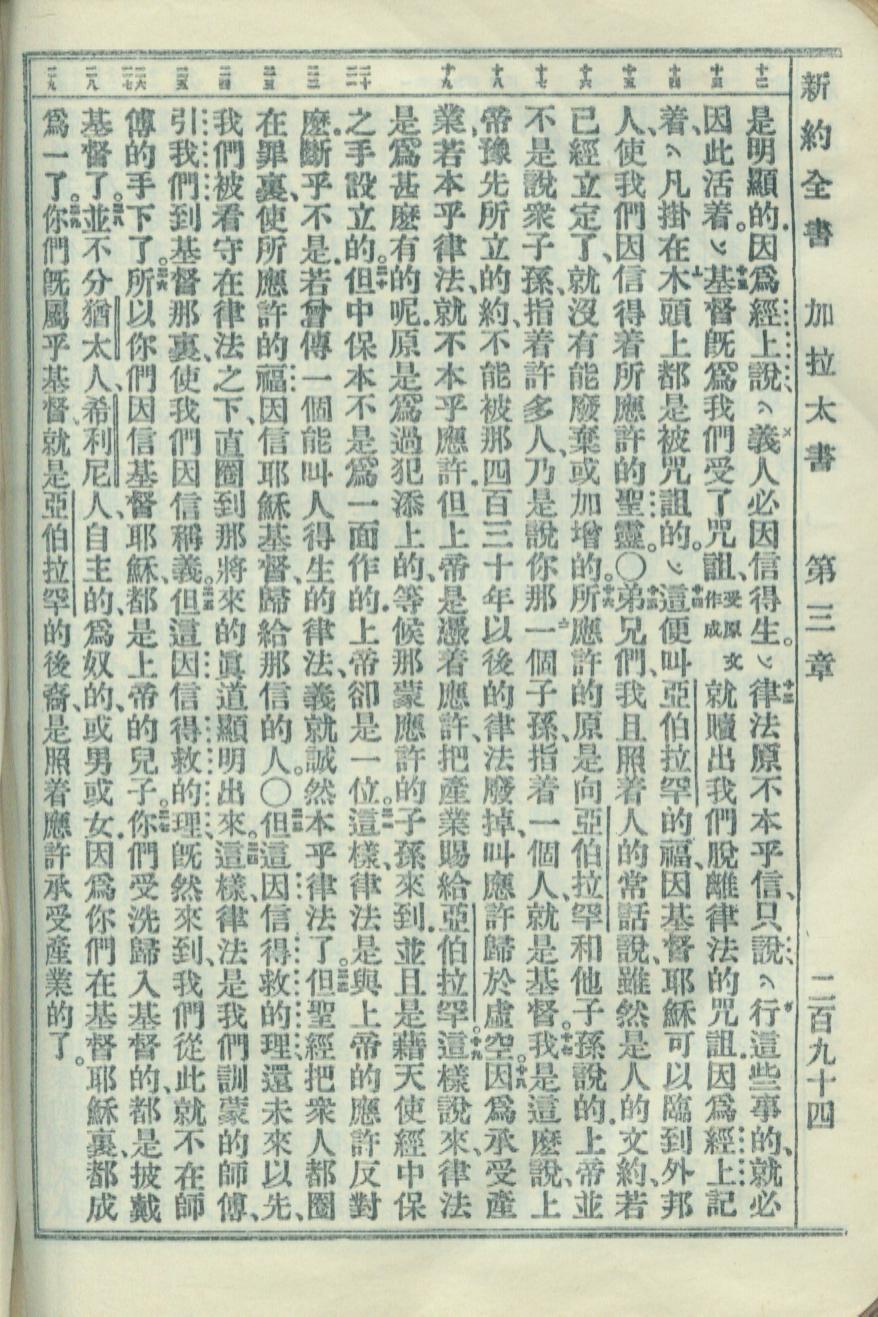 新約全書 加拉太書 第三章 二百九十四
十二 十三 十四 十五 十六 十七 十八 十九 二十 二一 二二 二三 二四 二五 二六 二七 二八 二九
是明顯的、因爲經上說、〈義人必因信得生。〉十二律法原不本乎信、只說、〈行這些事的、就必
因此活着。〉十三基督旣爲我們受了咒詛、受原文作成就贖出我們脫離律法的咒詛、因爲經上記
着、〈凡掛在木頭上都是被咒詛的。〉十四這便叫亞伯拉罕的福、因基督耶穌可以臨到外邦
人、使我們因信得着所應許的聖靈。〇十五弟兄們、我且照着人的常話說、雖然是人的文約、若
已經立定了、就沒有能廢棄或加增的。十六所應許的原是向亞伯拉罕和他子孫說的、上帝並
不是說衆子孫、指着許多人、乃是說你那一個子孫、指着一個人、就是基督。十七我是這麼說、上
帝豫先所立的約、不能被那四百三十年以後的律法廢掉、叫應許歸於虛空。十八因爲承受產
業、若本乎律法、就不本乎應許、但上帝是憑着應許、把產業賜給亞伯拉罕。十九這樣說來、律法
是爲甚麼有的呢、原是爲過犯添上的、等候那蒙應許的子孫來到、並且是藉天使經中保
之手設立的。二十但中保本不是爲一面作的、上帝卻是一位。二一這樣、律法是與上帝的應許反對
麼、斷乎不是、若曾傳一個能叫人得生的律法、義就誠然本乎律法了。二二但聖經把衆人都圈
在罪裏、使所應許的福、因信耶穌基督、歸給那信的人。〇二三但這因信得救的理、還未來以先、
我們被看守在律法之下、直圈到那將來的眞道顯明出來。二四這樣、律法是我們訓蒙的師傅、
引我們到基督那裏、使我們因信稱義。二五但這因信得救的理、旣然來到、我們從此就不在師
傅的手下了。二六所以你們因信基督耶穌、都是上帝的兒子。二七你們受洗歸入基督的、都是披戴
基督了。二八並不分猶太人、希利尼人、自主的、爲奴的、或男或女、因爲你們在基督耶穌裏、都成
爲一了。二九你們旣屬乎基督、就是亞伯拉罕的後裔、是照着應許承受產業的了。